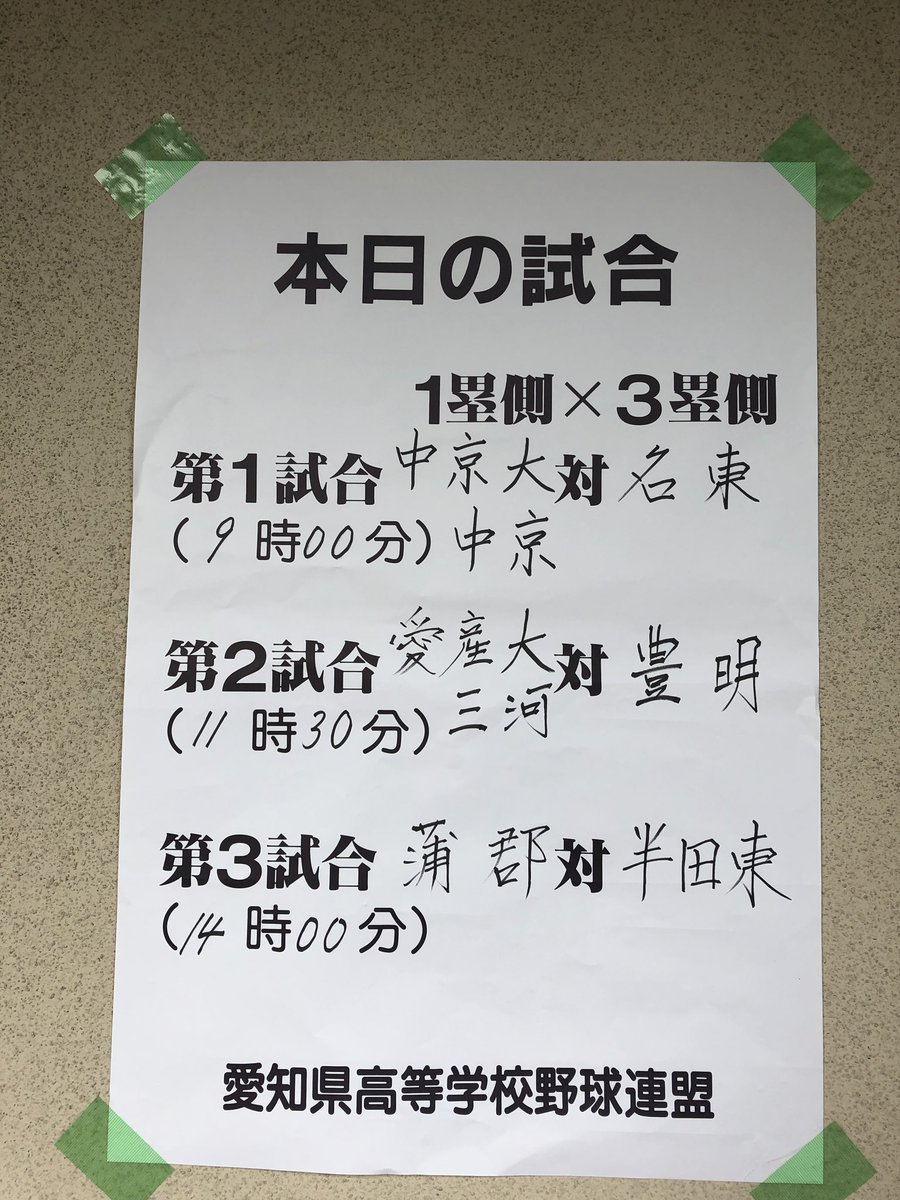 本日の試合
1塁側×3塁側
第1試合 中京大 対 名東
(9時00分) 中京
第2試合 愛産大 対 豊明
(11時30分) 三河
第3試合 蒲郡 対 半田東
(14時00分)
愛知県高等学校野球連盟